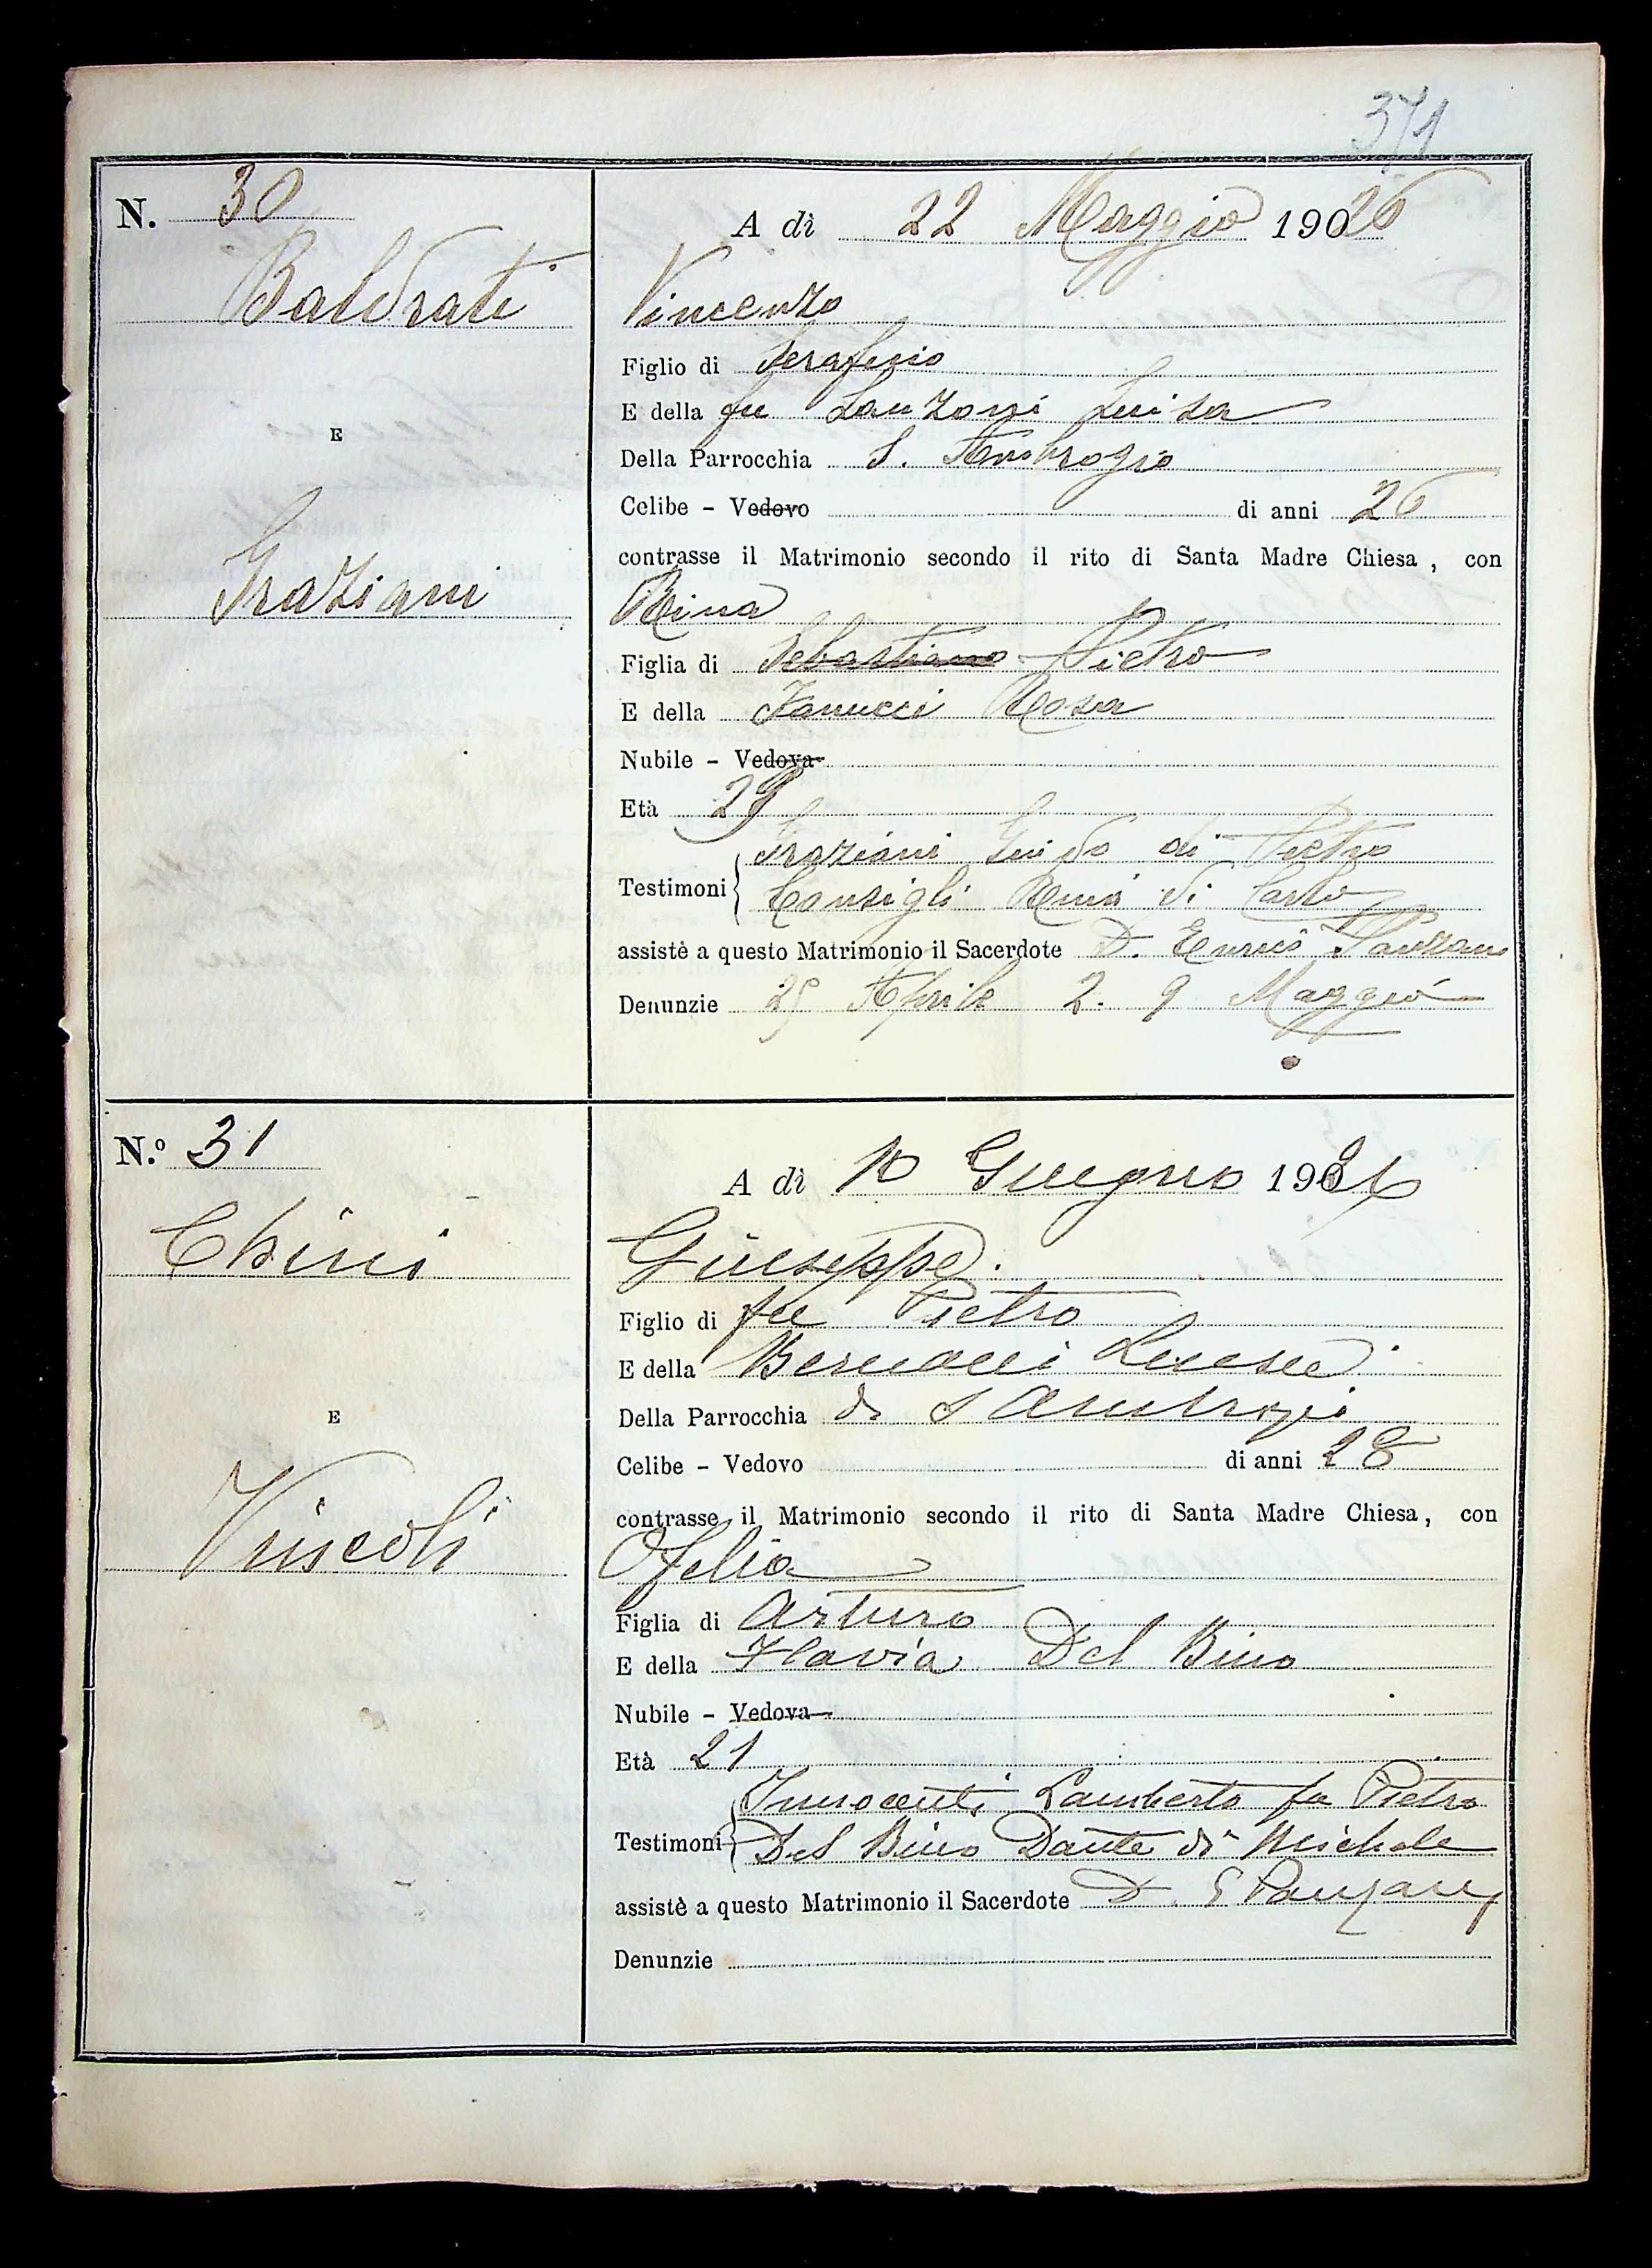 371
N. 30
A dì 22 Maggio 19026
Baldrati
Vincenzo
Figlio di Serafino
E della fu Lanzoni Luisa
E
Della Parrocchia S. Ambrogio
Celibe - Vedovo di anni 26
contrasse il Matrimonio secondo il rito di Santa Madre Chiesa, con
Graziani
Rina
Figlia di Sebastiano Pietro
E della Fanucci Rosa
Nubile - Vedova
Età 29
Graziani Guido di Pietro
Testimoni
Consigli di Carlo
assistè a questo Matrimonio il Sacerdote D. Enrico Panzani
Denunzie 25 Aprile 2. 9 Maggio
N.o 31
A dì 10 Giugno 1926
Chini
Giuseppe
Figlio di fu Pietro
E della Luisa
E
Della Parrocchia di S Ambrogi
Celibe - Vedovo di anni 28
contrasse il Matrimonio secondo il rito di Santa Madre Chiesa, con
Ofelia
Figlia di Arturo
E della Flavia Del Bino
Nubile - Vedova
Età 21
Innocenti Lamberto fu Pietro
Testimoni
Del Bino Dante di Michele
assistè a questo Matrimonio il Sacerdote D. E Panzani
Denunzie